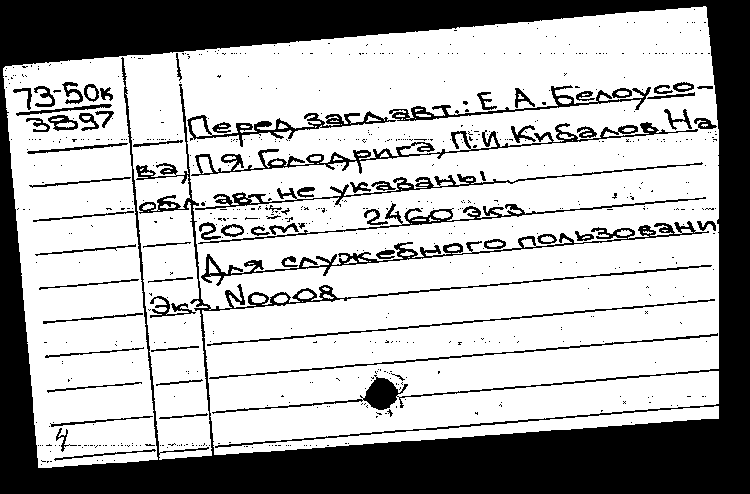 73-50к
3897
Перед загл.авт.: Е.А.Белоусо-
ва, П.Я.Голодрига, П.И.Кибалов. На
обл. авт. не указаны.
20 cm. 2460 экз.
Для служебного пользовани
Экз. N0008.
4